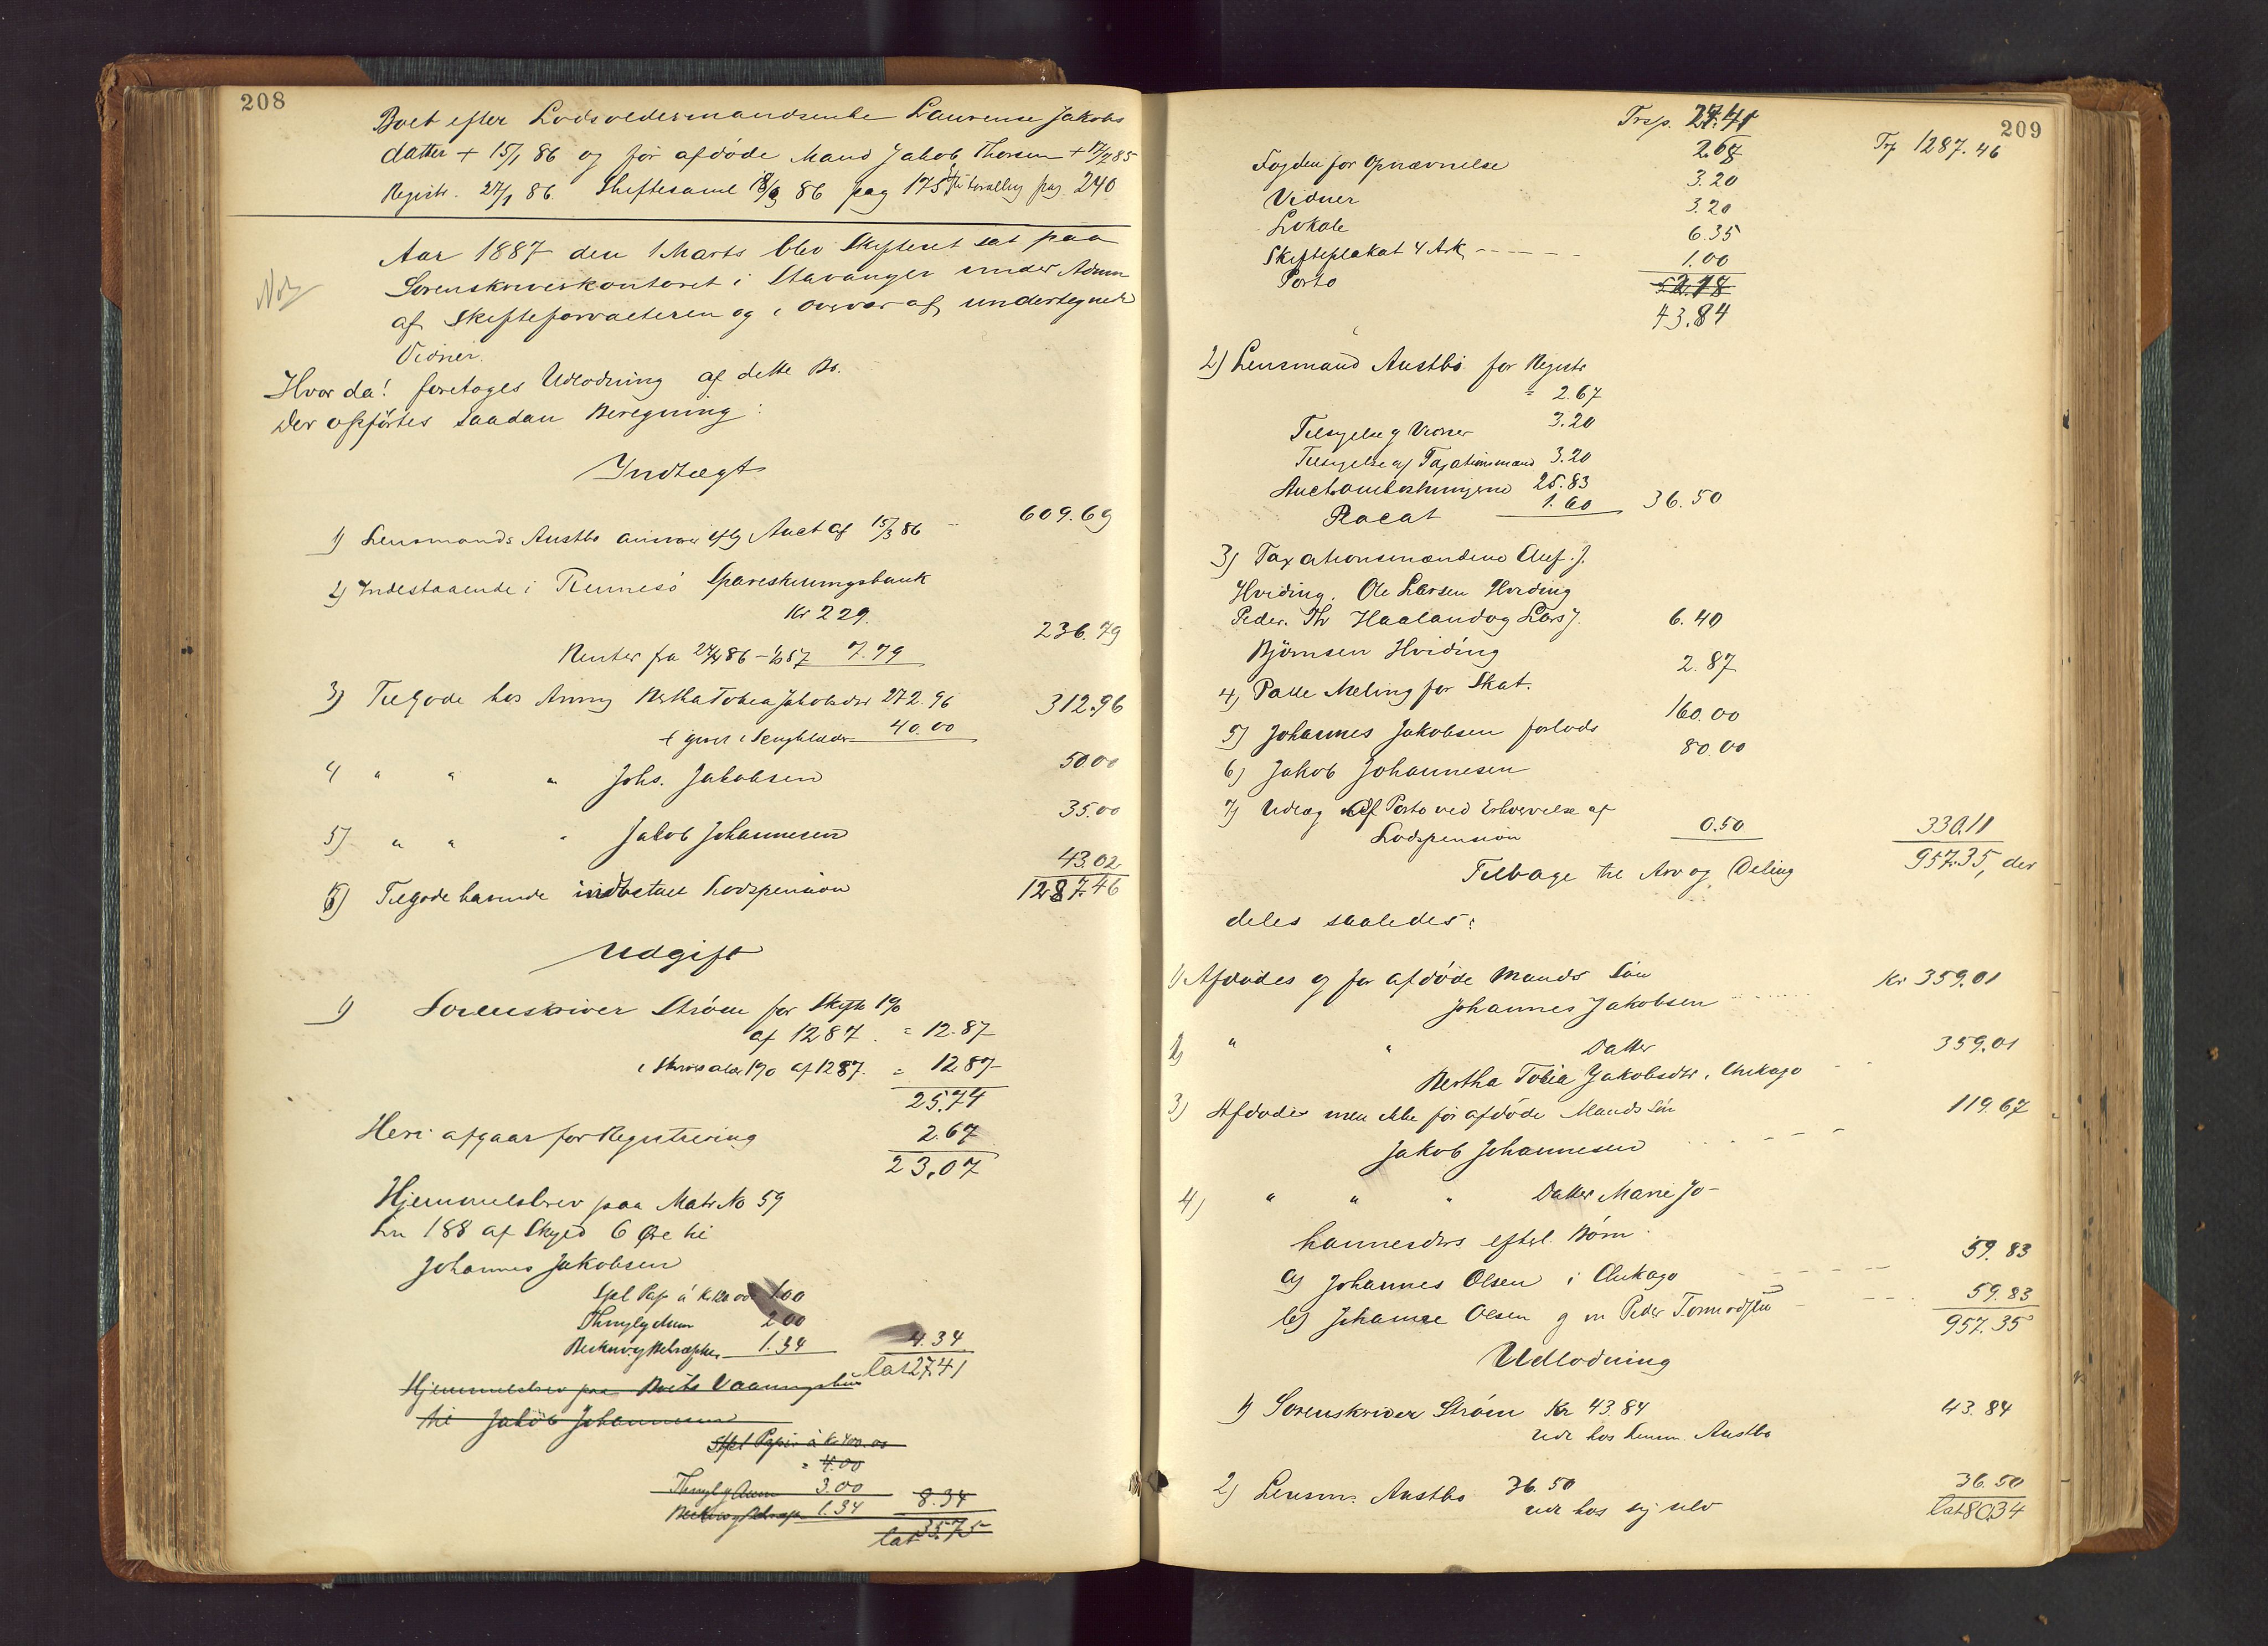 208
Boet efter Lodsoldermandsenke Laurense Jakobs
datter + 15/1 86 og før afdøde Mand Jakob Thorsen + 17/2 85
Registr. 27/1 86. Skiftesaml 18/3 86 pag 175 pag 240
Aar 1887 den 1 Marts blev Skifteret sat paa
Sorenskriverkontoret i Stavanger under Adm
af Skifteforvalteren og i Overvær af undertegnede
Vidner.
Hvor da! foretages Udlodning af dette Bo.
Der opførtes saadan Beregning:
Indtægt
1) Lensmands Austbø ansvar iflg Auct af 15/3 86 609.69
2) Indestaaende i Rennesø Spareskillingsbank
Kr 229.
Renter fra 24/4 86 - 1/3 87 7.79 236.79
3) Tilgode hos Arving Bertha Tobea Jakobsdtr 272.96
40.00 312.96
4 " " " Johs. Jakobsen 50.00
5) " " " Jakob Johannesen 35.00
6) Tilgodehavende indbetalt Lodspension 43.02
1287.46
Udgift
1) Sorenskriver Strøm for Skifte 1%
af 1287. = 12.87
i Skriversalær 1% af 1287. = 12.87
25.74
Heri afgaar for Registrering 2.67
23.07
Hjemmelsbrev paa Matr No 59
Ln 188 af Skyld 6 Øre til
Johannes Jakobsen
Stpl Pap á Kr 120.00 1.00
Thinglysning 2.00
Beskriv og Bekræftelse 1.34 4.34
lat 27.41
Hjemmelsbrev paa Boets Vaaningshus
til Jakob Johannesen
Stpl Papir à Kr 400.00
= 4.00
Thinglysning 3.00
Beskriv og Bekræft 1.34 8.34
lat 35.75
209
Trsp. 27.41 Trp 1287.46
Fogden for Opnævnelse 2.67
Vidner 3.20
Lokale 3.20
Skifteplakat 4 Ark 6.35
Porto 1.00
52.18
43.84
2) Lensmand Austbø for Registr
= 2.67
Tilsigelse af Vidner 3.20
Tilsigelse af Taxationsmænd 3.20
Auctomkostningerne 25.83
Placat 1.60 36.50
3) Taxationsmændene J.
Hviding. Ole Larsen Hviding
Peder Th Haaland og Lars J.
Bjørnsen Hviding 6.40
4) Palle Meling for Skat. 2.87
5) Johannes Jakobsen forlods 160.00
6) Jakob Johannesen 80.00
7) Udlæg af Porto ved Erhvervelse af
Lodspension 0.50 330.11
Tilbage til Arv og Deling 957.35, der
deles saaledes:
1) Afdødes og før afdøde Mands Søn
Johannes Jakobsen Kr 359.01
2) " " Datter
Bertha Tobia Jakobsdtr, Chikago 359.01
3) Afdødes men ikke før afdøde Mands Søn
Jakob Johannesen 119.67
4) " " " Datter Marie Jo-
hannesdtrs efterl. Børn.
a) Johannes Olsen i Chikago 59.83
b) Johanne Olsen g m Peder 59.83
957.35
Udlodning
1) Sorenskriver Strøm Kr 43.84 43.84
udl hos Lensm. Austbø
2) Lensm. Austbø 36.50 36.50
udl hos sig selv lat 80.34